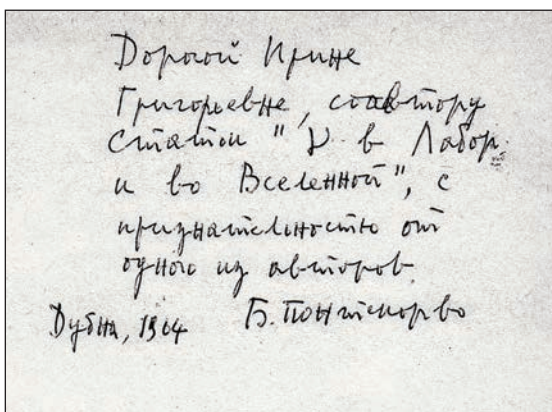 Дорогой Ирине
Григорьевне, соавтору
статьи "ν в Лабор.
и во Вселенной", с
признательностью от
одного из авторов.
Дубна, 1964 Б. Понтекорво